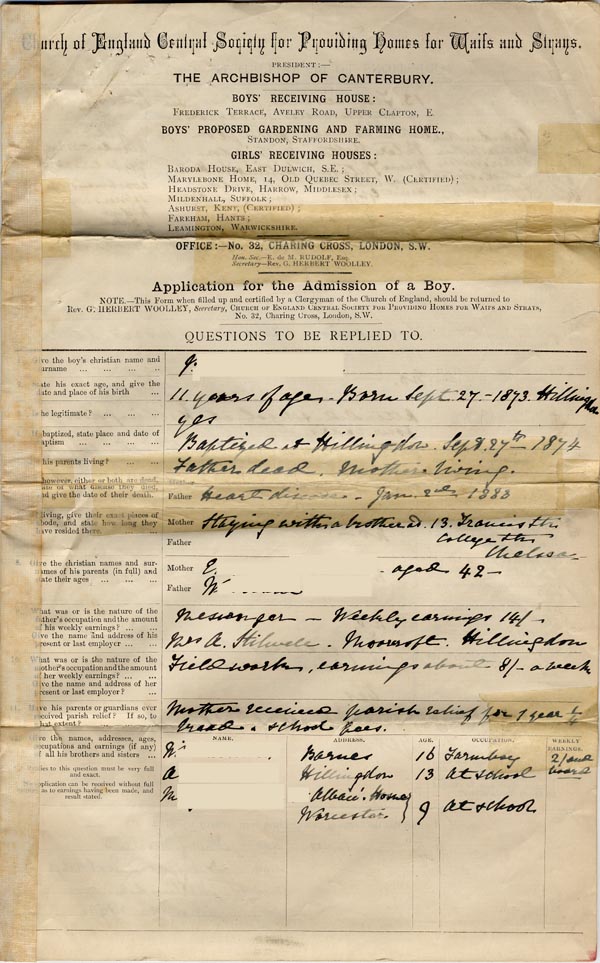 Church of England Central Society for Providing Homes for Waifs and Strays.
PRESIDENT:—
THE ARCHBISHOP OF CANTERBURY.
BOYS' RECEIVING HOUSE:
FREDERICK TERRACE, AVELEY ROAD, UPPER CLAPTON, E.
BOYS' PROPOSED GARDENING AND FARMING HOME.,
STANDON, STAFFORDSHIRE.
GIRLS' RECEIVING HOUSES:
BARODA HOUSE, EAST DULWICH, S.E.;
MARYLEBONE HOME, 14, OLD QUEBEC STREET, W. (CERTIFIED);
HEADSTONE DRIVE, HARROW, MIDDLESEX;
MILDENHALL, SUFFOLK;
ASHURST, KENT, (CERTIFIED);
FAREHAM, HANTS;
LEAMINGTON, WARWICKSHIRE.
OFFICE:—No. 32, CHARING CROSS, LONDON, S.W.
Hon. Sec.—E. de M. RUDOLF, Esq.
Secretary—Rev. G. HERBERT WOOLLEY.
Application for the Admission of a Boy.
NOTE.—This Form when filled up and certified by a Clergyman of the Church of England, should be returned to
Rev. G. HERBERT WOOLLEY, Secretary, CHURCH OF ENGLAND CENTRAL SOCIETY FOR PROVIDING HOMES FOR WAIFS AND STRAYS,
No. 32, Charing Cross, London, S.W.
QUESTIONS TO BE REPLIED TO.
Give the boy's christian name and
surname ... ... ... ...
J.
State his exact age, and give the
date and place of his birth ...
11 years of age. Born Sept. 27 - 1873. Hillingdon
Is he legitimate? ... ... ...
yes
If baptized, state place and date of
baptism ... ... ... ...
Baptized at Hillingdon. Sept. 27th 1874
his parents living? ... ...
Father dead. Mother living.
however, either or both are dead,
state of what disease they died,
and give the date of their death.
Father Heart disease - Jan. 2nd 1883
living, give their exact places of
abode, and state how long they
have resided there. ... ...
Mother Staying with a brother at 13. Francis St
College St
Chelsea
Father
Give the christian names and sur-
names of his parents (in full) and
state their ages ... ... ...
Mother E. aged 42 -
Father W
What was or is the nature of the
father's occupation and the amount
of his weekly earnings? ... ...
Messenger - Weekly earnings 14/-
Give the name and address of his
present or last employer ... ...
Mrs A. Stilwell. Moorcroft. Hillingdon
What was or is the nature of the
mother's occupation and the amount
of her weekly earnings? ... ...
Give the name and address of her
present or last employer? ...
Field work, earnings about 8/- a week
Have his parents or guardians ever
received parish relief? If so, to
what extent? ... ... ...
Mother received parish relief for 1 year 1/6
bread & school fees.
Give the names, addresses, ages,
occupations and earnings (if any)
of all his brothers and sisters ...
Replies to this question must be very full
and exact.
Application can be received without full
as to earnings having been made, and
result stated.
NAME. ADDRESS. AGE. OCCUPATION. WEEKLY EARNINGS.
W. Barnes 16 Farmboy 2/ and board
A Hillingdon 13 At school
M Home
Worcester 9 At school